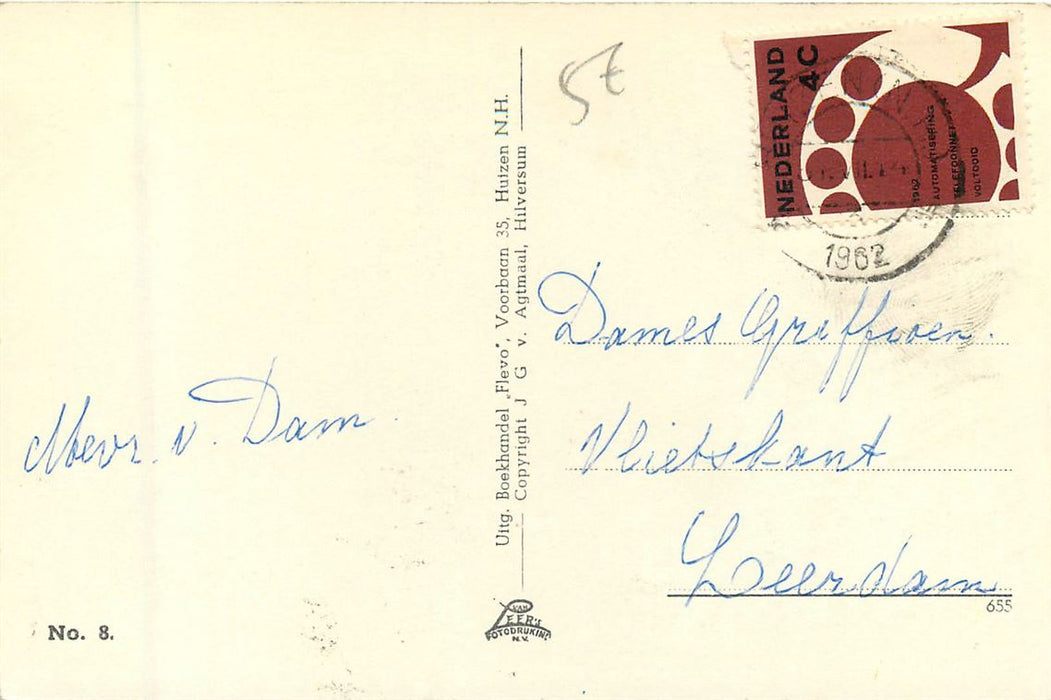 5€
NEDERLAND
4C
1962
AUTOMATISERING
TELEFOONNET
VOLTOOID
1962
Dames
Vlietskant
Leerdam
655
Mevr. v. Dam.
No. 8.
Uitg. Boekhandel „Flevo", Voorbaan 35, Huizen N.H.
Copyright J G v. Agtmaal, Hilversum
VAN
LEER'S
FOTODRUKIND
N.V.